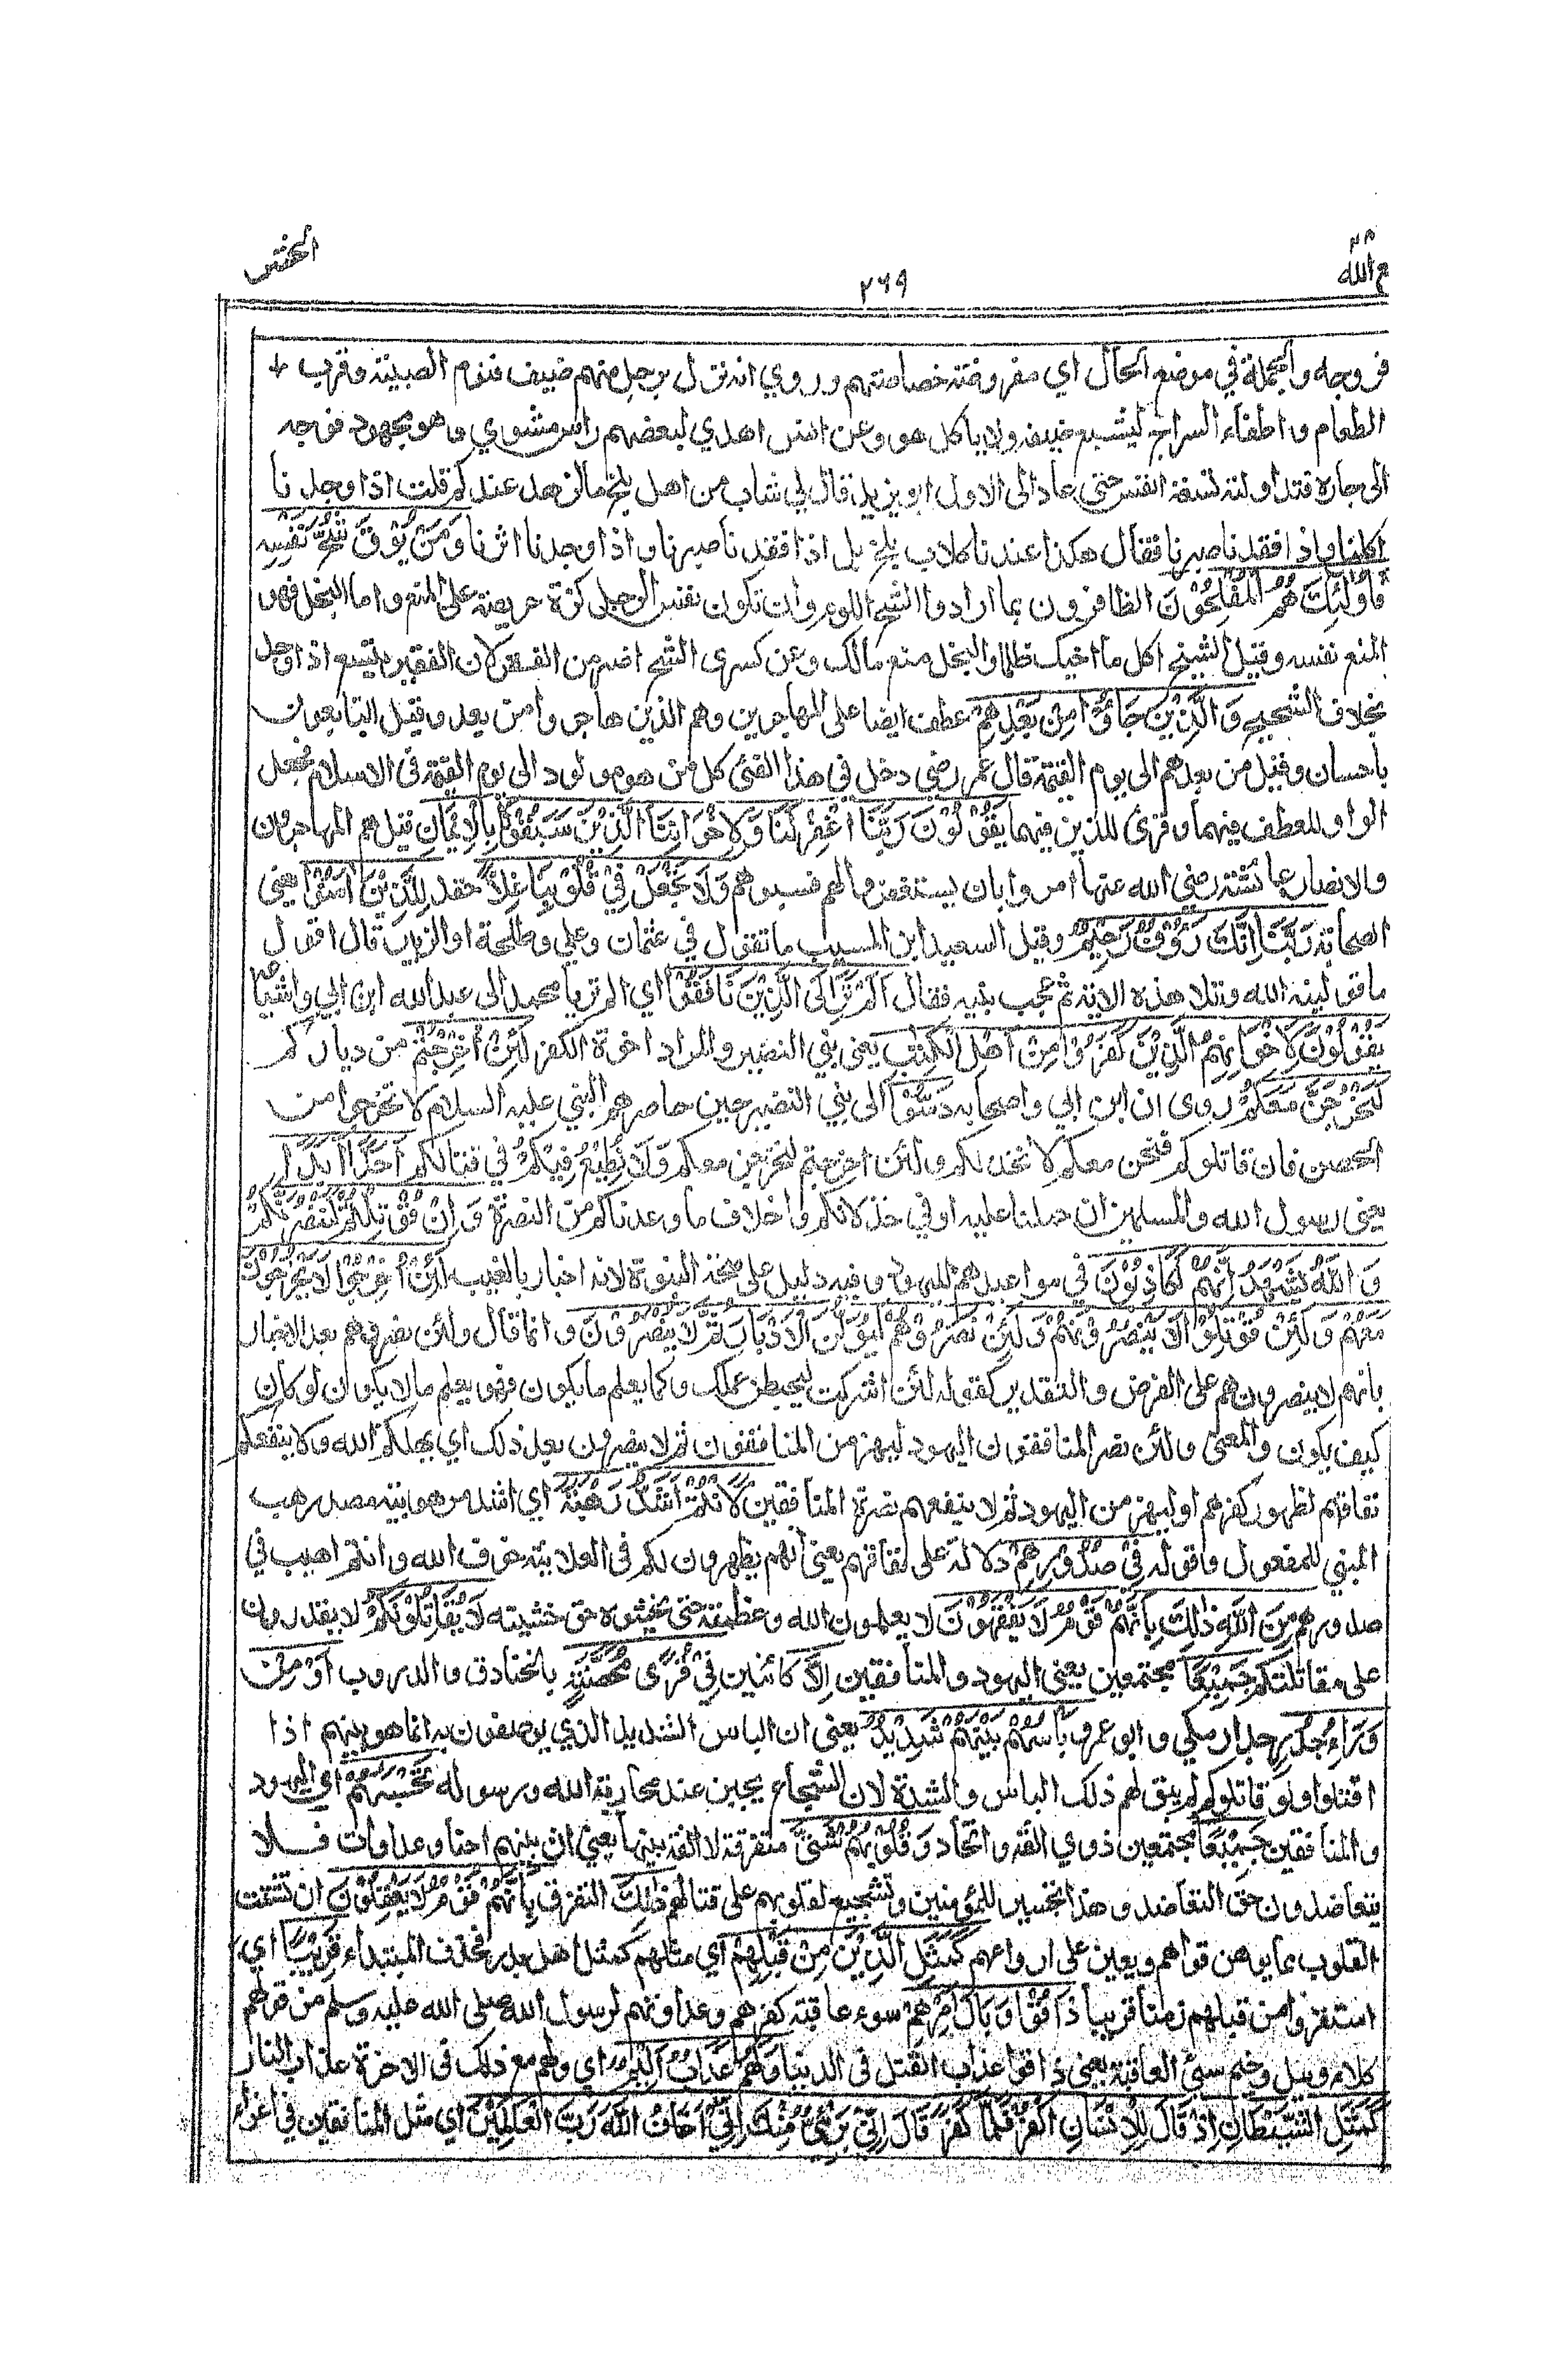 ٢٨
مع الله
٢٦٩
الحشر
فروجه والجملة في موضع الحال اي مفروضة خصاصتهم وروي انه نزل برجل منهم ضيف فنوم الصبية وقرب
الطعام واطفاء السراج ليشبع ضيفه ولا ياكل هو وعن انس اهدي لبعضهم راس مشوي وهو مجهود فوجه
الى جاره فتداولته تسعة انفس حتى عاد الى الاول ابو يزيد قال لي شاب من اهل بلخ ما الزهد عندكم قلت اذا وجدنا
اكلنا واذا فقدنا صبرنا فقال هكذا عندنا كلاب بلخ بل اذا فقدنا صبرنا واذا وجدنا اثرنا وَمَنْ يُّوْقَ شُحَّ نَفْسِهٖ
فَاُولٰٓئِكَ هُمُ الْمُفْلِحُوْنَ الظافرون بما ارادوا الشح اللوم وان تكون نفس الرجل كزة حريصة على المنع واما البخل فهو
المنع نفسه وقيل الشح اكل مال اخيك ظلما والبخل منع مالك وعن كسرى الشح اضر من الفقر لان الفقير يتسع اذا وجد
بخلاف الشحيح وَالَّذِيْنَ جَآءُوْ مِنْ بَعْدِهِمْ عطف ايضا على المهاجرين وهم الذين هاجروا من بعد وقيل التابعون
باحسان وقيل من بعدهم الى يوم القيمة قال عمر رضي دخل في هذا الفئ كل من هو مولود الى يوم القيمة في الاسلام فجعل
الواو للعطف فيهما وقرئ للذين فيهما يَقُوْلُوْنَ رَبَّنَا اغْفِرْ لَنَا وَلِاِخْوَانِنَا الَّذِيْنَ سَبَقُوْنَا بِالْاِيْمَانِ قيل هم المهاجرون
والانصار عائشة رضي الله عنها امروا بان يستغفروا لهم فسبوهم وَلَا تَجْعَلْ فِيْ قُلُوْبِنَا غِلًّا حقد لِلَّذِيْنَ اٰمَنُوْا يعني
الصحابة رَبَّنَا اِنَّكَ رَءُوْفٌ رَّحِيْمٌ وقيل لسعيد ابن المسيب ما تقول في عثمان وعلي وطلحة والزبير قال اقول
ما قولنيه الله وتلا هذه الاية ثم عجب نبيه فقال اَلَمْ تَرَ اِلَى الَّذِيْنَ نَافَقُوْا اي الم تر يا محمد الى عبد الله ابن ابي واشياعه
يَقُوْلُوْنَ لِاِخْوَانِهِمُ الَّذِيْنَ كَفَرُوْا مِنْ اَهْلِ الْكِتٰبِ يعني بني النضير والمراد اخوة الكفر لَئِنْ اُخْرِجْتُمْ من دياركم
لَنَخْرُجَنَّ مَعَكُمْ روى ان ابن ابي واصحابه دَسُّوْا الى بني النضير حين حاصرهم النبي عليه السلام لا تخرجوا من
الحصن فان قاتلوكم فنحن معكم لا نخذلكم ولئن اخرجتم لنخرجن معكم وَلَا نُطِيْعُ فِيْكُمْ في قتالكم اَحَدًا اَبَدًا
يعني رسول الله والمسلمين ان حملنا عليه او في خذلانكم واخلاف ما وعدناكم من النصرة وَاِنْ قُوْتِلْتُمْ لَنَنْصُرَنَّكُمْ
وَاللّٰهُ يَشْهَدُ اِنَّهُمْ لَكَاذِبُوْنَ في مواعيدهم لليهود وفيه دليل على صحة النبوة لانه اخبار بالغيب لَئِنْ اُخْرِجُوْا لَا يَخْرُجُوْنَ
مَعَهُمْ وَلَئِنْ قُوْتِلُوْا لَا يَنْصُرُوْنَهُمْ وَلَئِنْ نَّصَرُوْهُمْ لَيُوَلُّنَّ الْاَدْبَارَ ثُمَّ لَا يُنْصَرُوْنَ وانما قال ولئن نصروهم بعد الاخبار
بانهم لا ينصرونهم على الفرض والتقدير كقوله لئن اشركت ليحبطن عملك وكما يعلم ما يكون فهو يعلم ما لا يكون ان لو كان
كيف يكون والمعنى ولئن نصر المنافقون اليهود ليهزمن المنافقون ثم لا ينصرون بعد ذلك اي يهلكهم الله ولا ينفعهم
نفاقهم لظهور كفرهم او ليهزمن اليهود ثم لا ينفعهم نصرة المنافقين لَاَنْتُمْ اَشَدُّ رَهْبَةً اي اشد مرهوبية مصدر رهب
المبني للمفعول وقوله فِيْ صُدُوْرِهِمْ دلالة على نفاقهم يعني انهم يظهرون لكم في العلانية خوف الله وانتم اهيب في
صدورهم مِنَ اللّٰهِ ذٰلِكَ بِاَنَّهُمْ قَوْمٌ لَّا يَفْقَهُوْنَ لا يعلمون الله وعظمته حتى يخشوه حق خشيته لَا يُقَاتِلُوْنَكُمْ لا يقدرون
على مقاتلتكم جَمِيْعًا مجتمعين يعني اليهود والمنافقين اِلَّا كائنين فِيْ قُرًى مُّحَصَّنَةٍ بالخنادق والدروب اَوْ مِنْ
وَّرَاءِ جُدُرٍ جدار مكي وابو عمرو بَاْسُهُمْ بَيْنَهُمْ شَدِيْدٌ يعني ان الباس الشديد الذي يوصفون به انما هو بينهم اذا
اقتتلوا ولو قاتلوكم لم يبق لهم ذلك الباس والشدة لان الشجاع يجبن عند محاربة الله ورسوله تَحْسَبُهُمْ اي اليهود
والمنافقين جَمِيْعًا مجتمعين ذوي الفة واتحاد وَقُلُوْبُهُمْ شَتّٰى متفرقة لا الفة بينها يعني ان بينهم احنا وعداوات فلا
يتعاضدون حق التعاضد وهذا تجسير للمؤمنين وتشجيع لقلوبهم على قتالهم ذٰلِكَ التفرق بِاَنَّهُمْ قَوْمٌ لَّا يَعْقِلُوْنَ ان تشتت
القلوب مما يوهن قواهم ويعين على ارواحهم كَمَثَلِ الَّذِيْنَ مِنْ قَبْلِهِمْ اي مثلهم كمثل اهل بدر فحذف المبتداء قَرِيْبًا اي
استقروا من قبلهم زمنا قريبا ذَاقُوْا وَبَالَ اَمْرِهِمْ سوء عاقبة كفرهم وعداوتهم لرسول الله صلى الله عليه وسلم من قولهم
كلاء وبيل وخيم سيئ العاقبة يعني ذاقوا عذاب القتل في الدنيا وَلَهُمْ عَذَابٌ اَلِيْمٌ اي ولهم مع ذلك في الاخرة عذاب النار
كَمَثَلِ الشَّيْطَانِ اِذْ قَالَ لِلْاِنْسَانِ اكْفُرْ فَلَمَّا كَفَرَ قَالَ اِنِّيْ بَرِيْٓءٌ مِّنْكَ اِنِّيْ اَخَافُ اللّٰهَ رَبَّ الْعٰلَمِيْنَ اي مثل المنافقين في اغراء